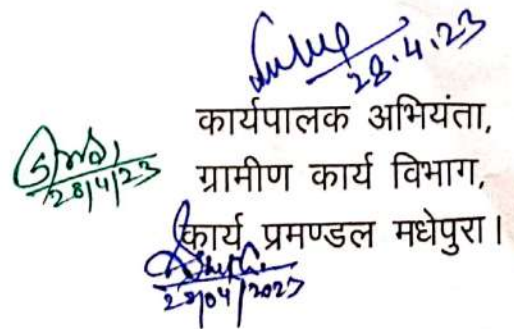 28.4.23
कार्यपालक अभियंता,
28/4/23
ग्रामीण कार्य विभाग,
कार्य प्रमण्डल मधेपुरा।
28/04/2023